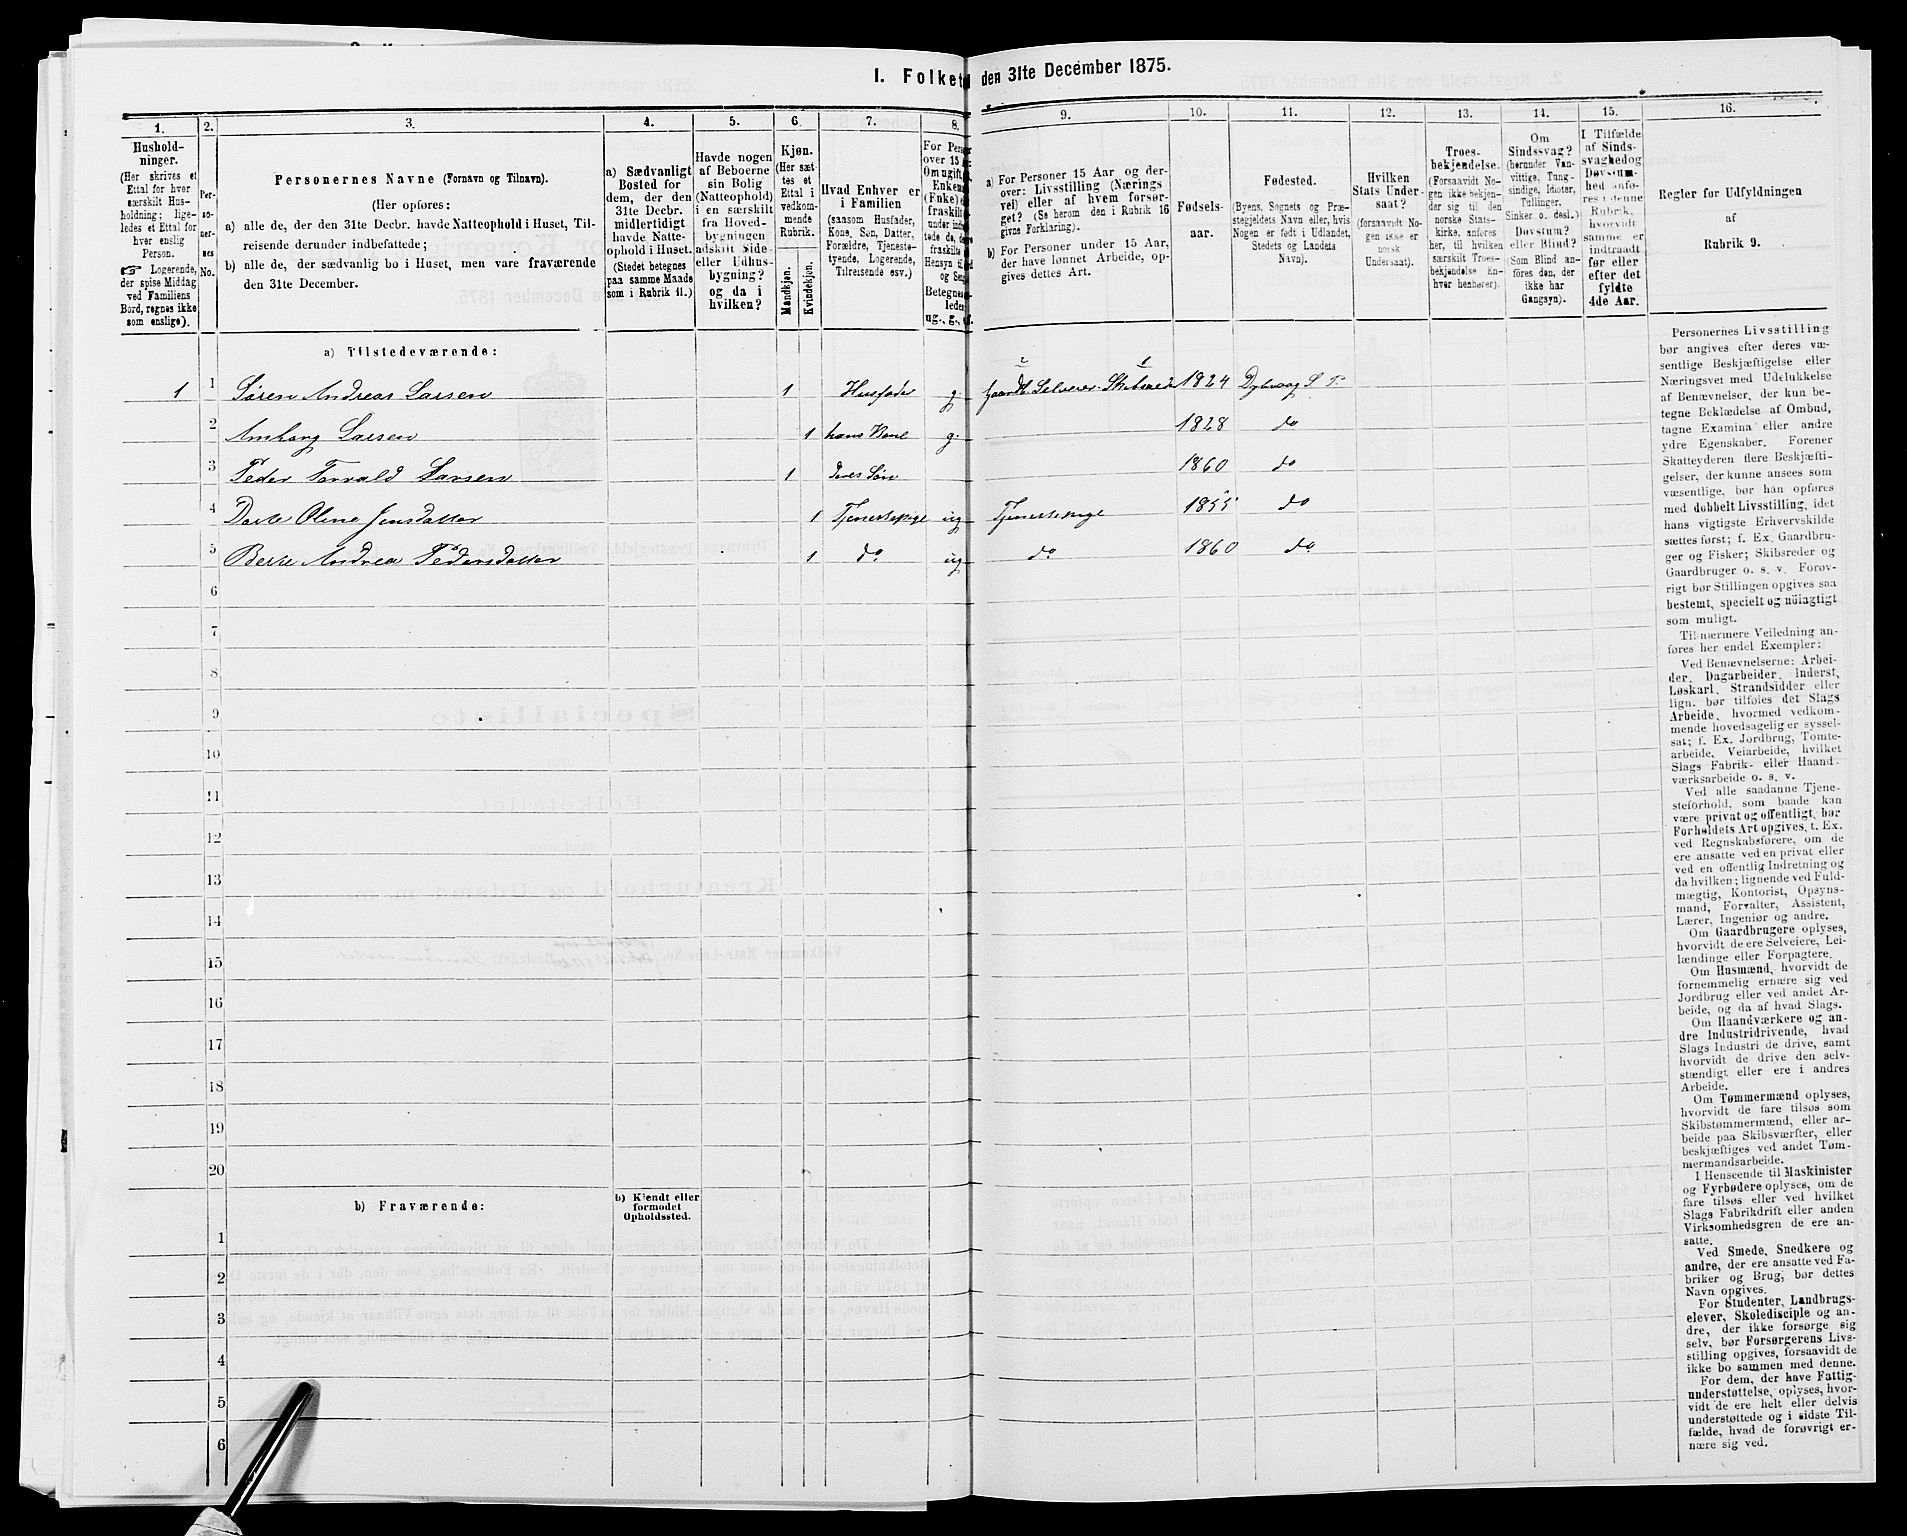 I. Folket den 31te December 1875.
1. 2. 3. 4. 5. 6. 7. 8. 9. 10. 11. 12. 13. 14. 15. 16.
Hushold-
ninger.
(Her skrives et
Ettal for hver
særskilt Hus-
holdning; lige-
ledes et Ettal for
hver enslig
Person.
☞ Logerende,
der spise Middag
ved Familiens
Bord, regnes ikke
som enslige).
Per-
so-
ner-
nes
No.
Personernes Navne (Fornavn og Tilnavn).
(Her opføres:
a) alle de, der den 31te Decbr. havde Natteophold i Huset, Til-
reisende derunder indbefattede;
b) alle de, der sædvanlig bo i Huset, men vare fraværende
den 31te December.
a) Sædvanligt
Bosted for
dem, der den
31te Decbr.
midlertidigt
havde Natte-
ophold i Huset.
(Stedet betegnes
paa samme Maade
som i Rubrik 11.)
Havde nogen
af Beboerne
sin Bolig
(Natteophold)
i en særskilt
fra Hoved-
bygningen
adskilt Side-
eller Udhus-
bygning?
og da i
hvilken?
Kjøn.
(Her sæt-
tes et
Ettal i
vedkom-
mende
Rubrik.
Mandkjøn.
Kvindekjøn.
Hvad Enhver er
i Familien
(saasom Husfader,
Kone, Søn, Datter,
Forældre, Tjeneste-
tyende, Logerende,
Tilreisende osv.)
For Pers
over 15
Om ugift
Enkem
(Enke) e
fraskilt
under indb
tede de, de
fraskilte
Hensyn ti
og Sen
Betegnes
ledes
ug., g., e
a) For Personer 15 Aar og der-
over: Livsstilling (Nærings-
vei) eller af hvem forsør-
get? (Se herom den i Rubrik 16
givne Forklaring).
b) For Personer under 15 Aar,
der have lønnet Arbeide, op-
gives dettes Art.
Fødsels-
aar.
Fødested.
(Byens, Sognets og Præ-
stegjeldets Navn eller, hvis
Nogen er født i Udlandet,
Stedets og Landets
Navn).
Hvilken
Stats Under-
saat?
(forsaavidt No-
gen ikke er
norsk
Undersaat).
Troes-
bekjendelse.
(Forsaavidt No-
gen ikke bekjen-
der sig til den
norske Stats-
kirke, anføres
her, til hvilken
særskilt Troes-
bekjendelse En-
hver henhører).
Om
Sindssvag?
(herunder Van-
vittige, Tung-
sindige, Idioter,
Tullinger,
Sinker o. desl.)
Døvstum?
eller Blind?
(Som Blind an-
føres den, der
ikke har
Gangsyn).
I Tilfælde
af Sinds-
svaghed og
Døvstum-
hed anfø-
res i denne
Rubrik,
hvorvidt
samme er
indtraadt
før eller
efter det
fyldte
4de Aar.
Regler for Udfyldningen
af
Rubrik 9.
a) Tilstedeværende:
1 1 Søren Andreas Larsen 1 Husfader g. Gaardb. Selveier. Skibsreder 1824 Dybvaag S. P.
2 Amborg Larsen 1 hans Kone g. 1828 do
3 Peder Torvald Larsen 1 Deres Søn 1860 do
4 Dorte Oline Jensdatter 1 Tjenestepige ug Tjenestepige 1855 do
5 Berte Andrea Pedersdatter 1 do. ug do. 1860 do.
6
7
8
9
10
11
12
13
14
15
16
17
18
19
20
b) Fraværende:
b) Kjendt eller
formodet
Opholdssted.
1
2
3
4
5
6
Personernes Livsstilling
bør angives efter deres væ-
sentlige Beskjæftigelse eller
Næringsvei med Udelukkelse
af Benævnelser, der kun be-
tegne Beklædelse af Ombud,
tagne Examina eller andre
ydre Egenskaber. Forener
Skatteyderen flere Beskjæfti-
gelser, der kunne ansees som
væsentlige, bør han opføres
med dobbelt Livsstilling, idet
hans vigtigste Erhvervskilde
sættes først; f. Ex. Gaardbru-
ger og Fisker; Skibsreder og
Gaardbruger o. s. v. Forøv-
rigt bør Stillingen opgives saa
bestemt, specielt og nøiagtigt
som muligt.
Til nærmere Veiledning an-
føres her endel Exempler:
Ved Benævnelserne: Arbei-
der, Dagarbeider, Inderst,
Løskarl, Strandsidder eller
lign. bør tilføies det Slags
Arbeide, hvormed vedkom-
mende hovedsagelig er syssel-
sat; f. Ex. Jordbrug, Tomte-
arbeide, Veiarbeide, hvilket
Slags Fabrik- eller Haand-
værksarbeide o. s. v.
Ved alle saadanne Tjene-
steforhold, som baade kan
være privat og offentligt, bør
Forholdets Art opgives, t. Ex.
ved Regnskabsførere, om de
ere ansatte ved en privat eller
ved en offentlig Indretning og
da hvilken; lignende ved Fuld-
mægtig, Kontorist, Opsyns-
mand, Forvalter, Assistent,
Lærer, Ingeniør og andre.
Om Gaardbrugere oplyses,
hvorvidt de ere Selveiere, Lei-
lændinge eller Forpagtere.
Om Husmænd, hvorvidt de
fornemmelig ernære sig ved
Jordbrug eller ved andet Ar-
beide, og da af hvad Slags.
Om Haandværkere og an-
dre Industridrivende, hvad
Slags Industri de drive, samt
hvorvidt de drive den selv-
stændigt eller ere i andres
Arbeide.
Om Tømmermænd oplyses,
hvorvidt de fare tilsøs som
Skibstømmermænd, eller ar-
beide paa Skibsværfter, eller
beskjæftiges ved andet Tøm-
mermandsarbeide.
I Henseende til Maskinister
og Fyrbødere oplyses, om de
fare tilsøs eller ved hvilket
Slags Fabrikdrift eller anden
Virksomhedsgren de ere an-
satte.
Ved Smede, Snedkere og
andre, der ere ansatte ved Fa-
briker og Brug, bør dettes
Navn opgives.
For Studenter, Landbrugs-
elever, Skoledisciple og an-
dre, der ikke forsørge sig
selv, bør Forsørgerens Livs-
stilling opgives, forsaavidt de
ikke bo sammen med denne.
For dem, der have Fattig-
understøttelse, oplyses, hvor-
vidt de ere helt eller delvis
understøttede og i sidste Til-
fælde, hvad de forøvrigt er-
nære sig ved.